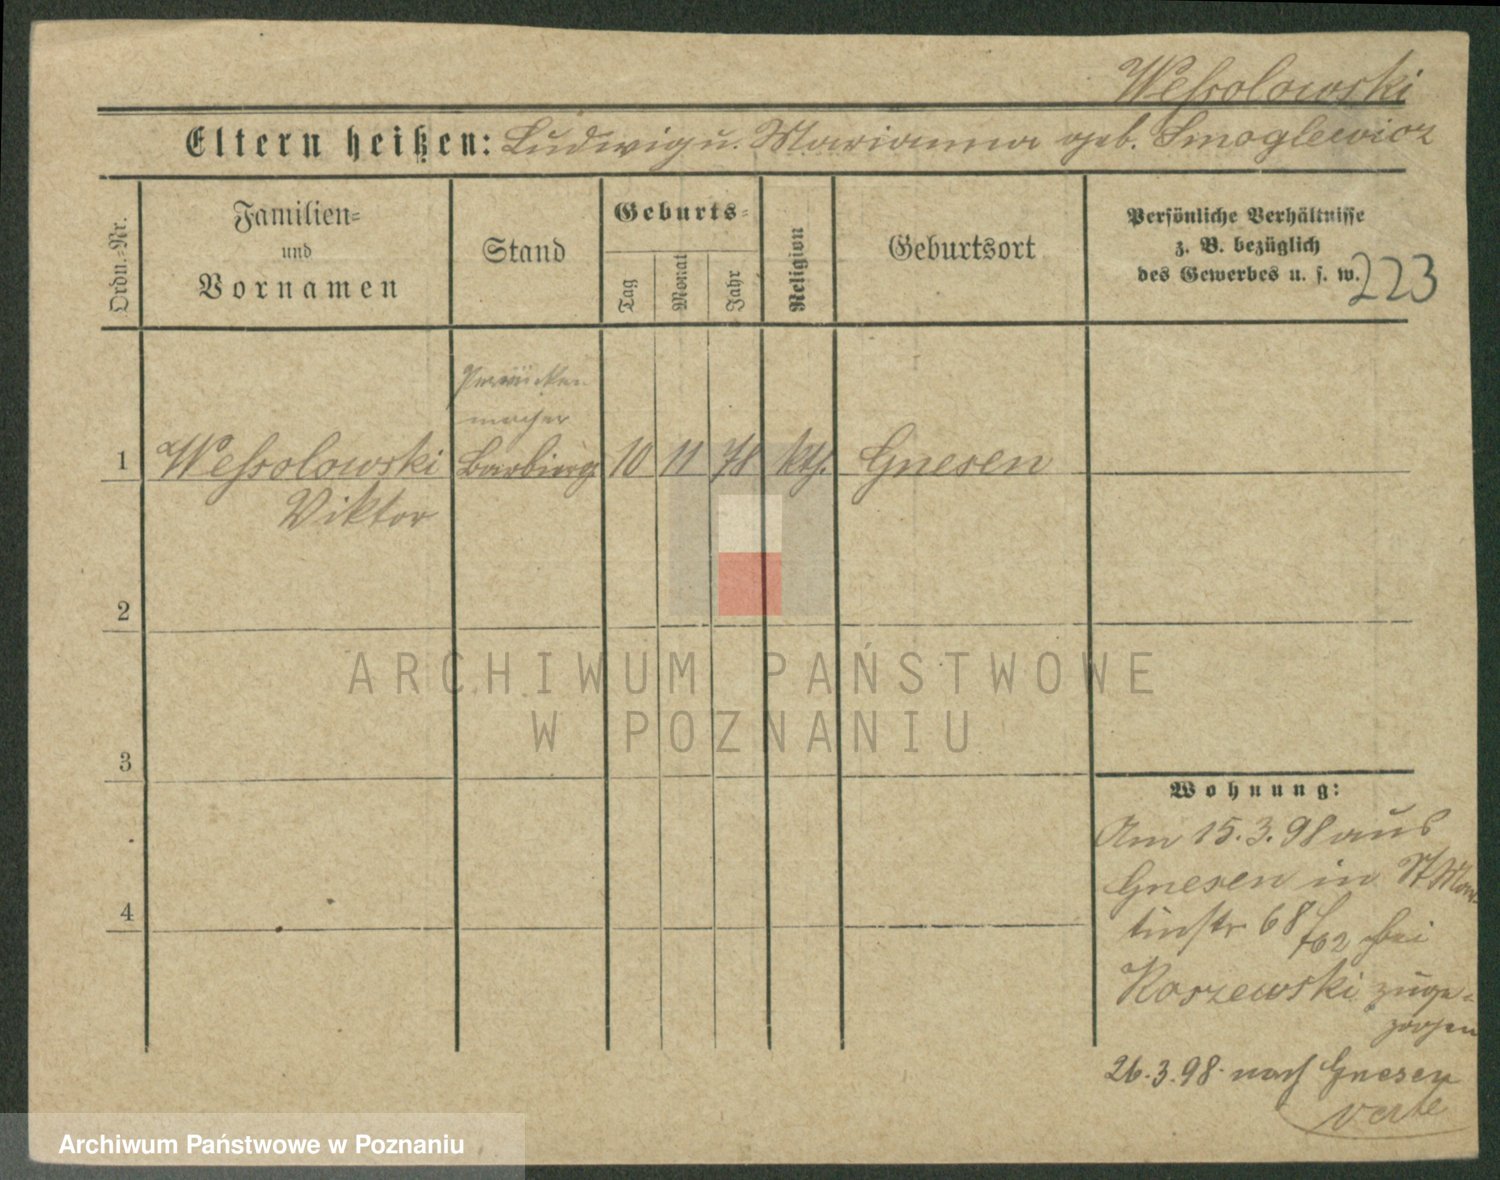 Weßolowski
Eltern heißen: Ludwig u. Marianna geb. Smoglewicz
Ordn.-Nr.
Familien-
und
Vornamen
Stand
Geburts-
Tag
Monat
Jahr
Religion
Geburtsort
Persönliche Verhältnisse
z. B. bezüglich
des Gewerbes u. s. w.
223
Perrücken
macher
1 Weßolowski Barbierg 10 11 78 kth. Gnesen
Viktor
2
ARCHIWUM PAŃSTWOWE
W POZNANIU
3
Wohnung:
Am 15.3.98 aus
Gnesen in St Mar
tinstr 68/ bei
4
Koszewski zuge-
zogen
26.3.98. nach Gnesen
verte
Archiwum Państwowe w Poznaniu